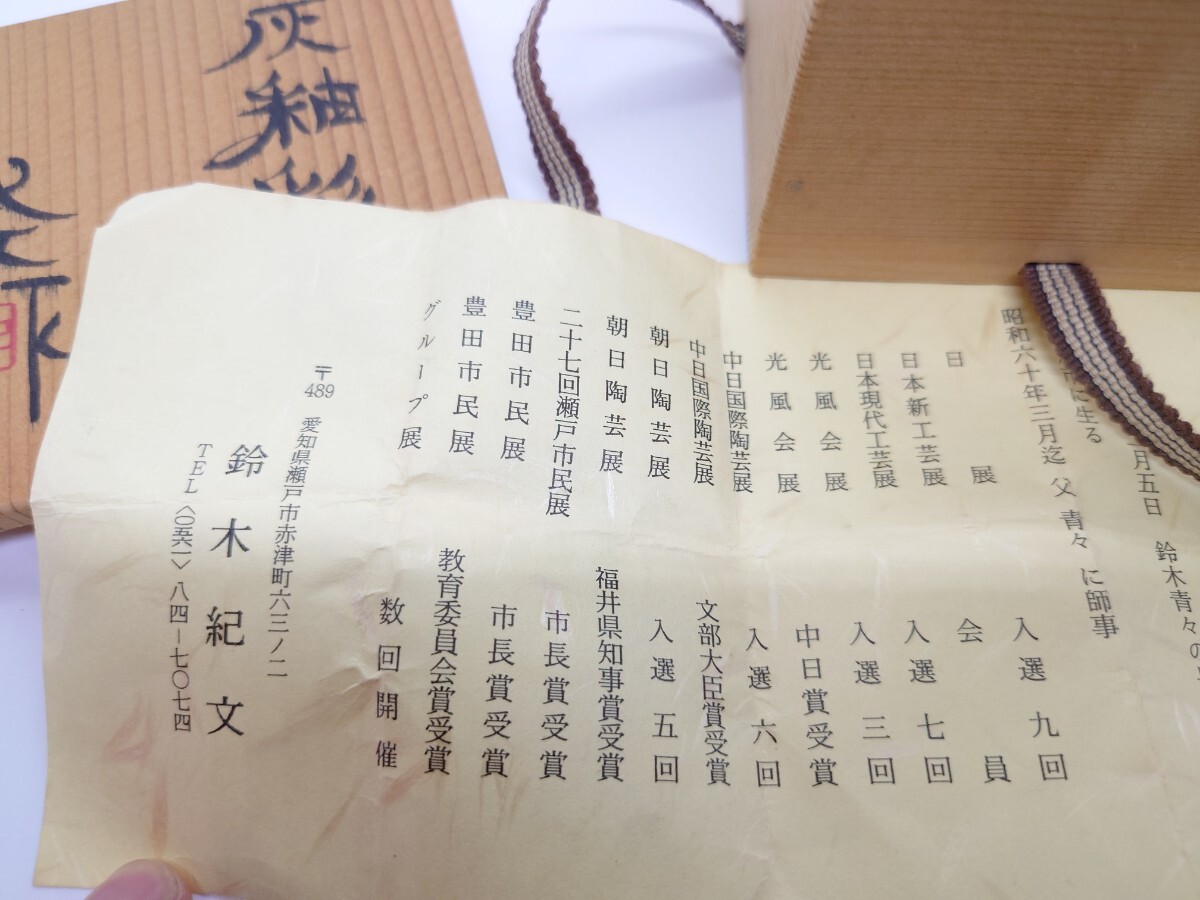 月五日 鈴木青々の
に生る
昭和六十年三月迄 父 青々 に師事
日展 入選九回
日本新工芸展 会員
日本現代工芸展 入選七回
光風会展 入選三回
光風会展 中日賞受賞
中日国際陶芸展 入選六回
中日国際陶芸展 文部大臣賞受賞
朝日陶芸展 入選五回
朝日陶芸展 福井県知事賞受賞
二十七回瀬戸市民展 市長賞受賞
豊田市民展 市長賞受賞
豊田市民展 教育委員会賞受賞
グループ展 数回開催
〒489 愛知県瀬戸市赤津町六三ノ二
鈴木紀文
TEL〈〇五六一〉八四－七〇七四
灰釉彩
文作